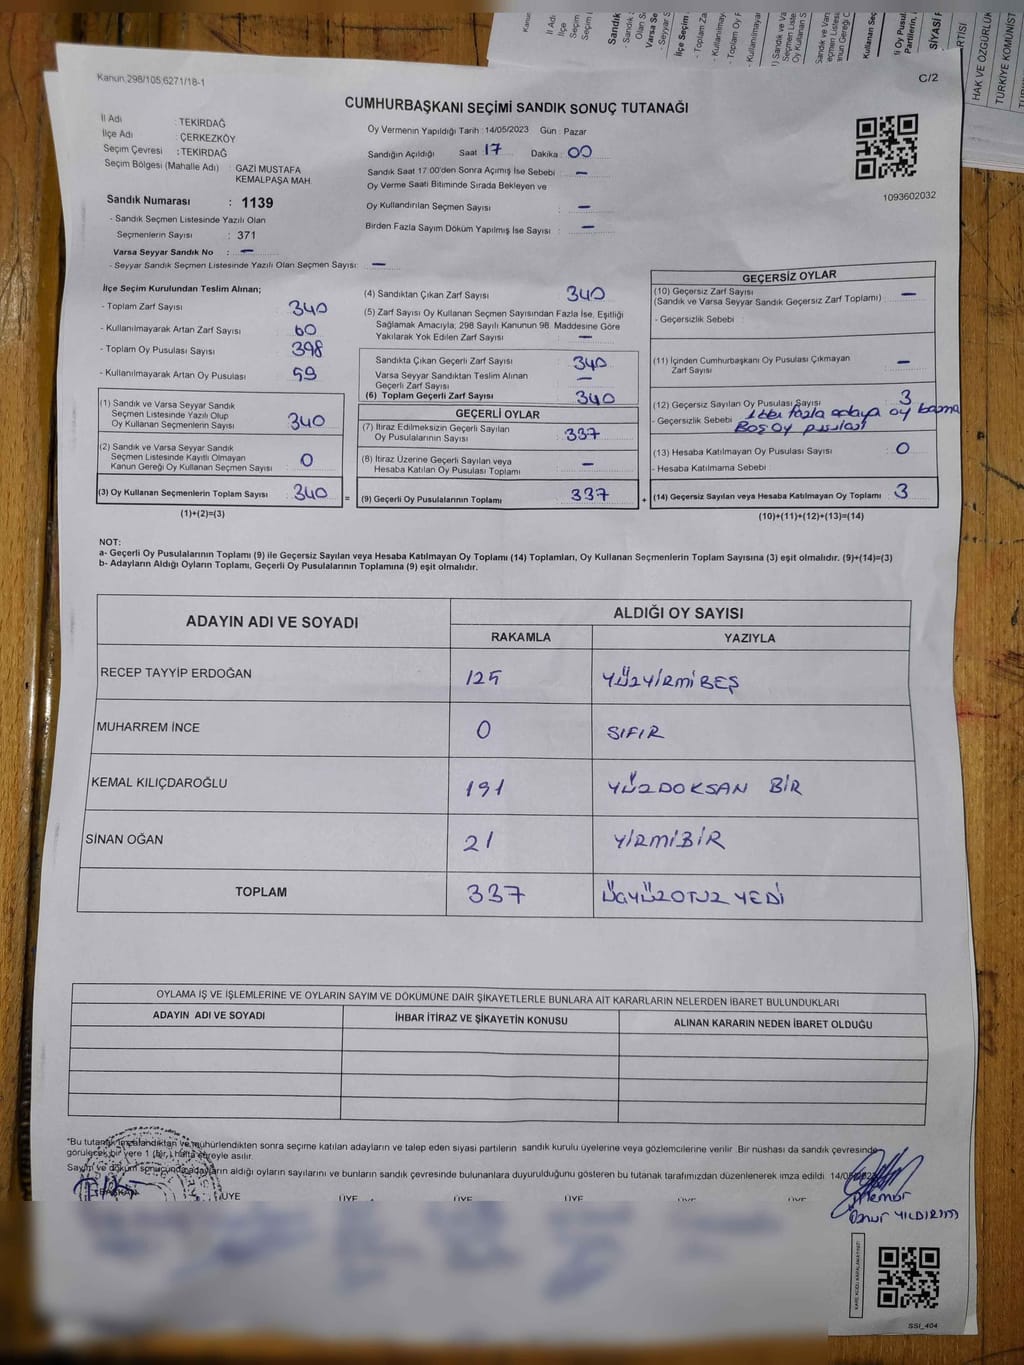 Kanun,298/105,6271/18-1
C/2
CUMHURBAŞKANI SEÇİMİ SANDIK SONUÇ TUTANAĞI
İl Adı : TEKİRDAĞ
İlçe Adı : ÇERKEZKÖY
Seçim Çevresi : TEKİRDAĞ
Seçim Bölgesi (Mahalle Adı) : GAZİ MUSTAFA
KEMALPAŞA MAH.
Sandık Numarası : 1139
- Sandık Seçmen Listesinde Yazılı Olan
Seçmenlerin Sayısı : 371
Varsa Seyyar Sandık No : —
- Seyyar Sandık Seçmen Listesinde Yazılı Olan Seçmen Sayısı: —
Oy Vermenin Yapıldığı Tarih : 14/05/2023 Gün : Pazar
Sandığın Açıldığı Saat 17 Dakika : 00
Sandık Saat 17:00'den Sonra Açımış İse Sebebi : —
Oy Verme Saati Bitiminde Sırada Bekleyen ve
Oy Kullandırılan Seçmen Sayısı : —
Birden Fazla Sayım Döküm Yapılmış İse Sayısı : —
1093602032
İlçe Seçim Kurulundan Teslim Alınan;
- Toplam Zarf Sayısı : 340
- Kullanılmayarak Artan Zarf Sayısı : 60
- Toplam Oy Pusulası Sayısı : 398
- Kullanılmayarak Artan Oy Pusulası : 59
(1) Sandık ve Varsa Seyyar Sandık
Seçmen Listesinde Yazılı Olup
Oy Kullanan Seçmenlerin Sayısı : 340
(2) Sandık ve Varsa Seyyar Sandık
Seçmen Listesinde Kayıtlı Olmayan
Kanun Gereği Oy Kullanan Seçmen Sayısı : 0
(3) Oy Kullanan Seçmenlerin Toplam Sayısı : 340 =
(1)+(2)=(3)
(4) Sandıktan Çıkan Zarf Sayısı : 340
(5) Zarf Sayısı Oy Kullanan Seçmen Sayısından Fazla İse, Eşitliği
Sağlamak Amacıyla; 298 Sayılı Kanunun 98. Maddesine Göre
Yakılarak Yok Edilen Zarf Sayısı : —
Sandıkta Çıkan Geçerli Zarf Sayısı : 340
Varsa Seyyar Sandıktan Teslim Alınan
Geçerli Zarf Sayısı : —
(6) Toplam Geçerli Zarf Sayısı : 340
GEÇERLİ OYLAR
(7) İtiraz Edilmeksizin Geçerli Sayılan
Oy Pusulalarının Sayısı : 337
(8) İtiraz Üzerine Geçerli Sayılan veya
Hesaba Katılan Oy Pusulası Toplamı : —
(9) Geçerli Oy Pusulalarının Toplamı : 337 +
GEÇERSİZ OYLAR
(10) Geçersiz Zarf Sayısı
(Sandık ve Varsa Seyyar Sandık Geçersiz Zarf Toplamı) : —
- Geçersizlik Sebebi :
(11) İçinden Cumhurbaşkanı Oy Pusulası Çıkmayan
Zarf Sayısı : —
(12) Geçersiz Sayılan Oy Pusulası Sayısı : 3
- Geçersizlik Sebebi : 1'den fazla adaya oy basma
Boş Oy pusulası
(13) Hesaba Katılmayan Oy Pusulası Sayısı : 0
- Hesaba Katılmama Sebebi :
(14) Geçersiz Sayılan veya Hesaba Katılmayan Oy Toplamı : 3
(10)+(11)+(12)+(13)=(14)
NOT:
a- Geçerli Oy Pusulalarının Toplamı (9) ile Geçersiz Sayılan veya Hesaba Katılmayan Oy Toplamı (14) Toplamları, Oy Kullanan Seçmenlerin Toplam Sayısına (3) eşit olmalıdır. (9)+(14)=(3)
b- Adayların Aldığı Oyların Toplamı, Geçerli Oy Pusulalarının Toplamına (9) eşit olmalıdır.
ADAYIN ADI VE SOYADI ALDIĞI OY SAYISI
RAKAMLA YAZIYLA
RECEP TAYYİP ERDOĞAN 125 YÜZYİRMİBEŞ
MUHARREM İNCE 0 SIFIR
KEMAL KILIÇDAROĞLU 191 YÜZDOKSAN BİR
SİNAN OĞAN 21 YİRMİBİR
TOPLAM 337 ÜÇYÜZOTUZ YEDİ
OYLAMA İŞ VE İŞLEMLERİNE VE OYLARIN SAYIM VE DÖKÜMÜNE DAİR ŞİKAYETLERLE BUNLARA AİT KARARLARIN NELERDEN İBARET BULUNDUKLARI
ADAYIN ADI VE SOYADI İHBAR İTİRAZ VE ŞİKAYETİN KONUSU ALINAN KARARIN NEDEN İBARET OLDUĞU
"Bu tutanak imzalandıktan ve mühürlendikten sonra seçime katılan adayların ve talep eden siyasi partilerin sandık kurulu üyelerine veya gözlemcilerine verilir .Bir nüshası da sandık çevresinde
görülecek bir yere 1 (bir ) hafta süreyle asılır.
Sayım ve döküm sonucunda adayların aldığı oyların sayılarını ve bunların sandık çevresinde bulunanlara duyurulduğunu gösteren bu tutanak tarafımızdan düzenlenerek imza edildi. 14/05/2023
BAŞKAN ÜYE ÜYE ÜYE ÜYE ÜYE ÜYE
Memur
Öznur YILDIRIM
SSI_404